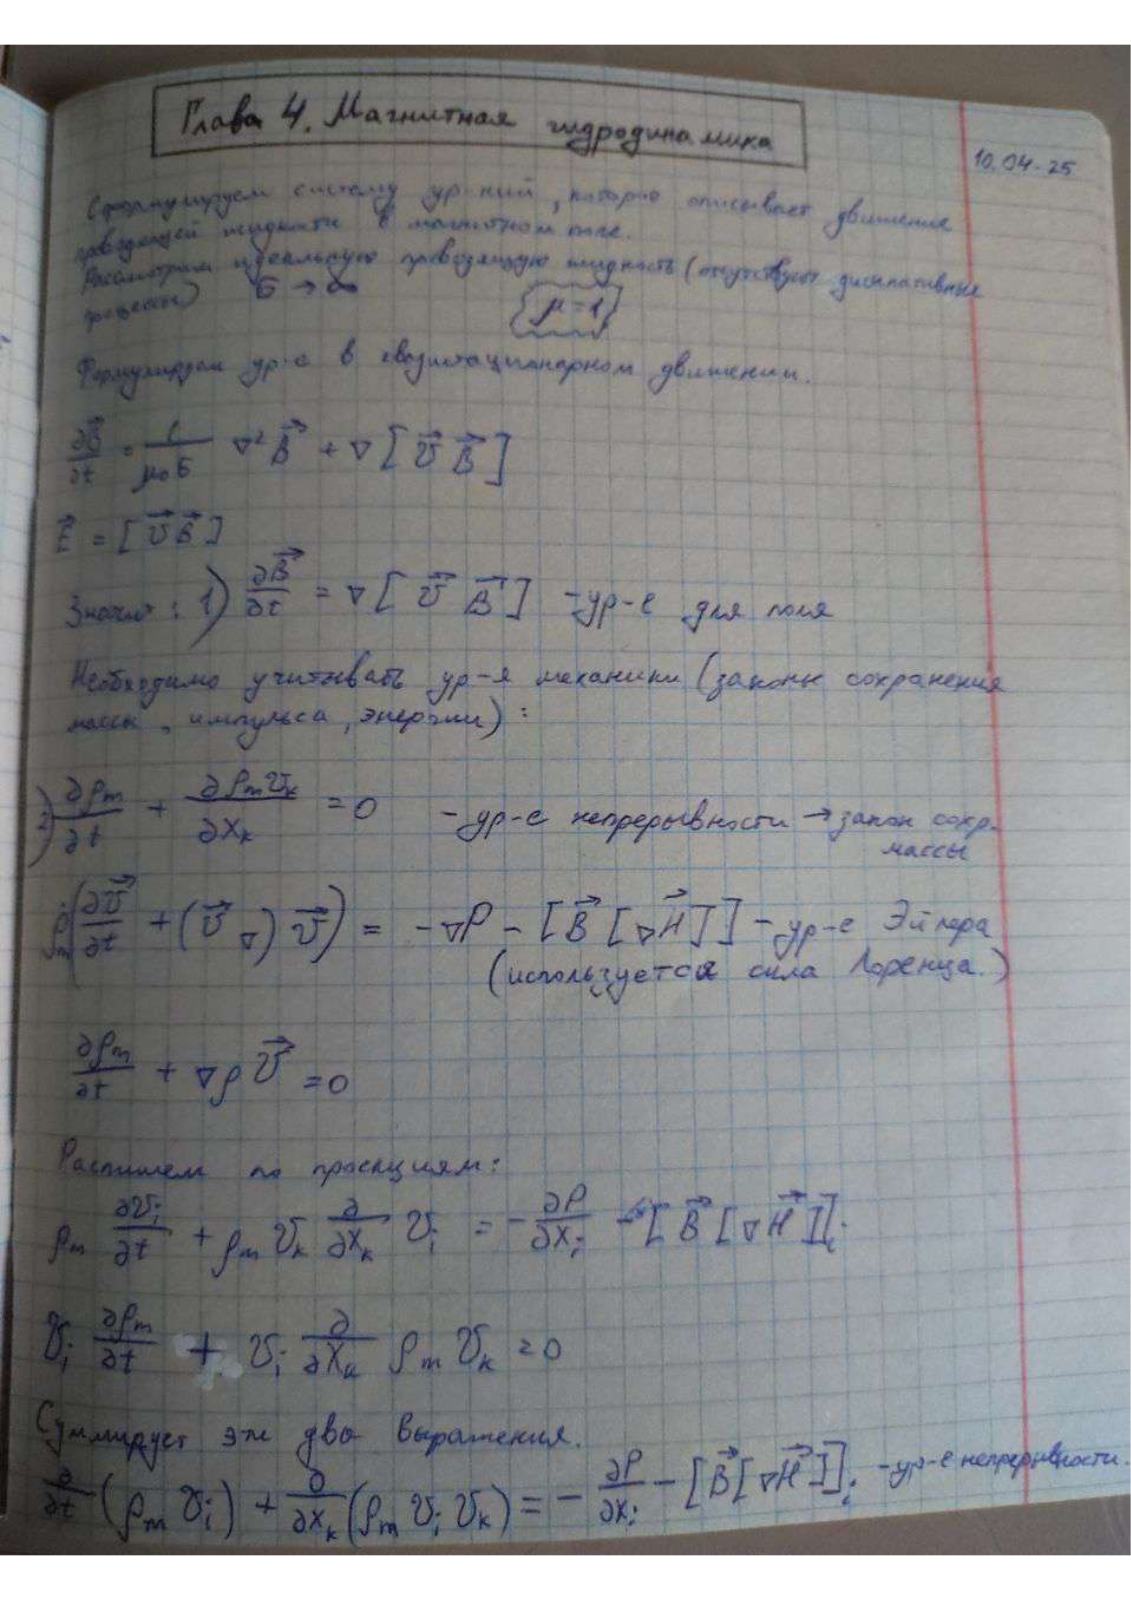 Глава 4. Магнитная гидродинамика
10.04-25
Сформулируем систему ур-ний, которые описывает движение
проводящей жидкости в магнитном поле.
Рассмотрим идеальную проводящую жидкость (отсутствуют диссипативные
процессы) σ → ∞
μ = 1
Формулируем ур-е в квазистационарном движении.
∂B⃗/∂t = 1/(μ₀σ) ∇² B⃗ + ∇ [ v⃗ B⃗ ]
= [ v⃗ B⃗ ]
Значит : 1) ∂B⃗/∂t = ∇ [ v⃗ B⃗ ] - ур-е для поля
Необходимо учитывать ур-я механики (законы сохранения
массы, импульса, энергии) :
2) ∂ρm/∂t + ∂ρm vk/∂xk = 0 - ур-е непрерывности → закон сохр.
массы
ρm (∂v⃗/∂t + (v⃗ ∇) v⃗) = - ∇P - [B⃗ [∇H⃗]] - ур-е Эйлера
(используется сила Лоренца.)
∂ρm/∂t + ∇ρ v⃗ = 0
Распишем по проекциям:
ρm ∂vi/∂t + ρm vk ∂/∂xk vi = - ∂P/∂xi - [ B⃗ [∇H⃗]]i
vi ∂ρm/∂t + vi ∂/∂xk ρm vk = 0
Суммирует эти два выражения.
∂/∂t (ρm vi) + ∂/∂xk (ρm vi vk) = - ∂P/∂xi - [B⃗[∇H⃗]]i - ур-е непрерывности.